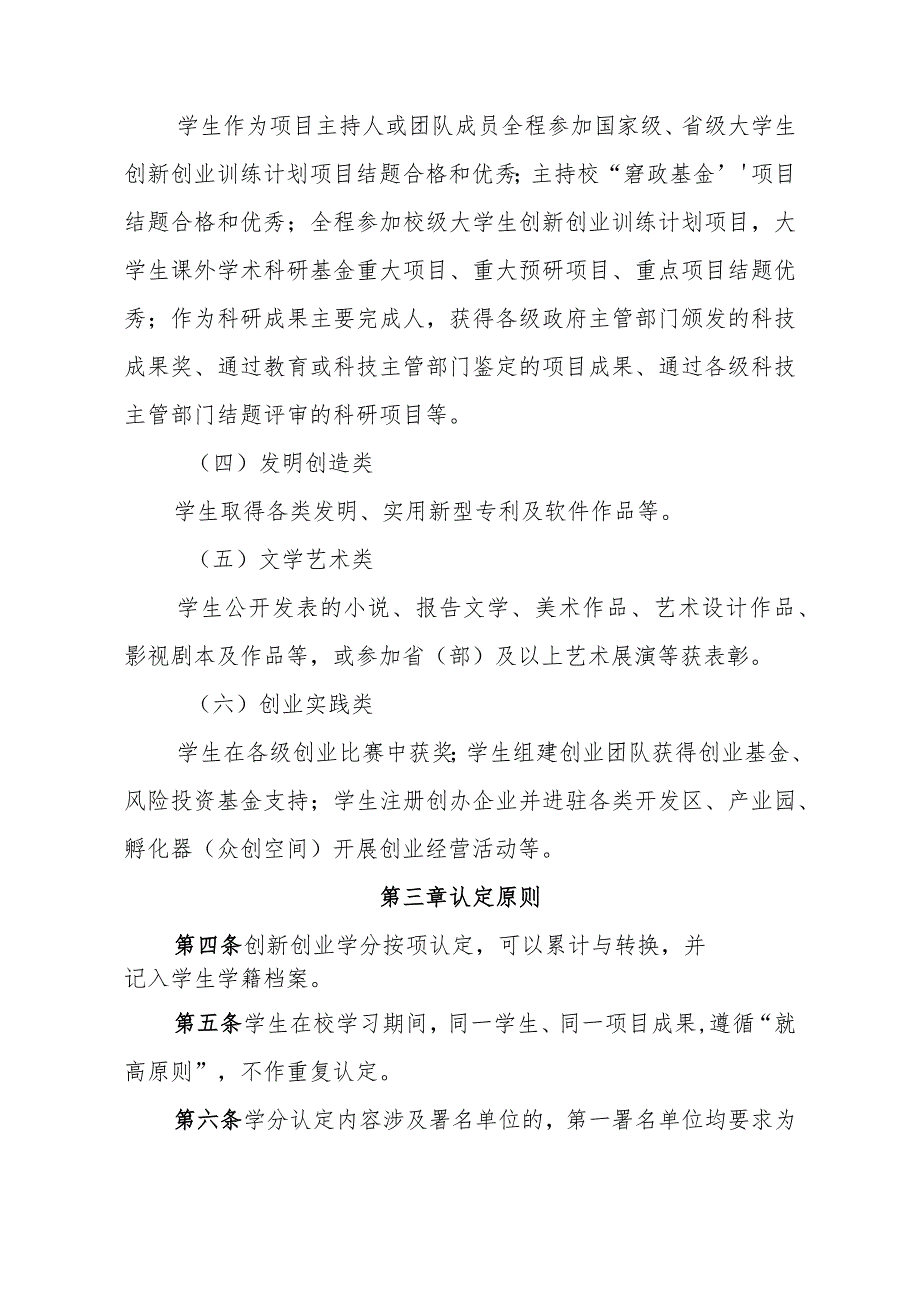 学生作为项目主持人或团队成员全程参加国家级、省级大学生
创新创业训练计划项目结题合格和优秀；主持校“窘政基金’'项目
结题合格和优秀；全程参加校级大学生创新创业训练计划项目，大
学生课外学术科研基金重大项目、重大预研项目、重点项目结题优
秀；作为科研成果主要完成人，获得各级政府主管部门颁发的科技
成果奖、通过教育或科技主管部门鉴定的项目成果、通过各级科技
主管部门结题评审的科研项目等。
（四）发明创造类
学生取得各类发明、实用新型专利及软件作品等。
（五）文学艺术类
学生公开发表的小说、报告文学、美术作品、艺术设计作品、
影视剧本及作品等，或参加省（部）及以上艺术展演等获表彰。
（六）创业实践类
学生在各级创业比赛中获奖；学生组建创业团队获得创业基金、
风险投资基金支持；学生注册创办企业并进驻各类开发区、产业园、
孵化器（众创空间）开展创业经营活动等。
第三章认定原则
第四条创新创业学分按项认定，可以累计与转换，并
记入学生学籍档案。
第五条学生在校学习期间，同一学生、同一项目成果,遵循“就
高原则”，不作重复认定。
第六条学分认定内容涉及署名单位的，第一署名单位均要求为